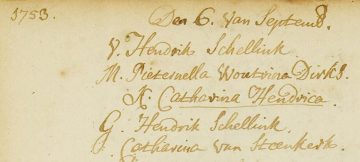 1753. Den 6. Van Septemb.
V. Hendrik Schellink
M. Pieternella Woutrina Dirks.
K. Catharina Hendrica.
G. Hendrik Schellink.
Catharina van Steenkerk.